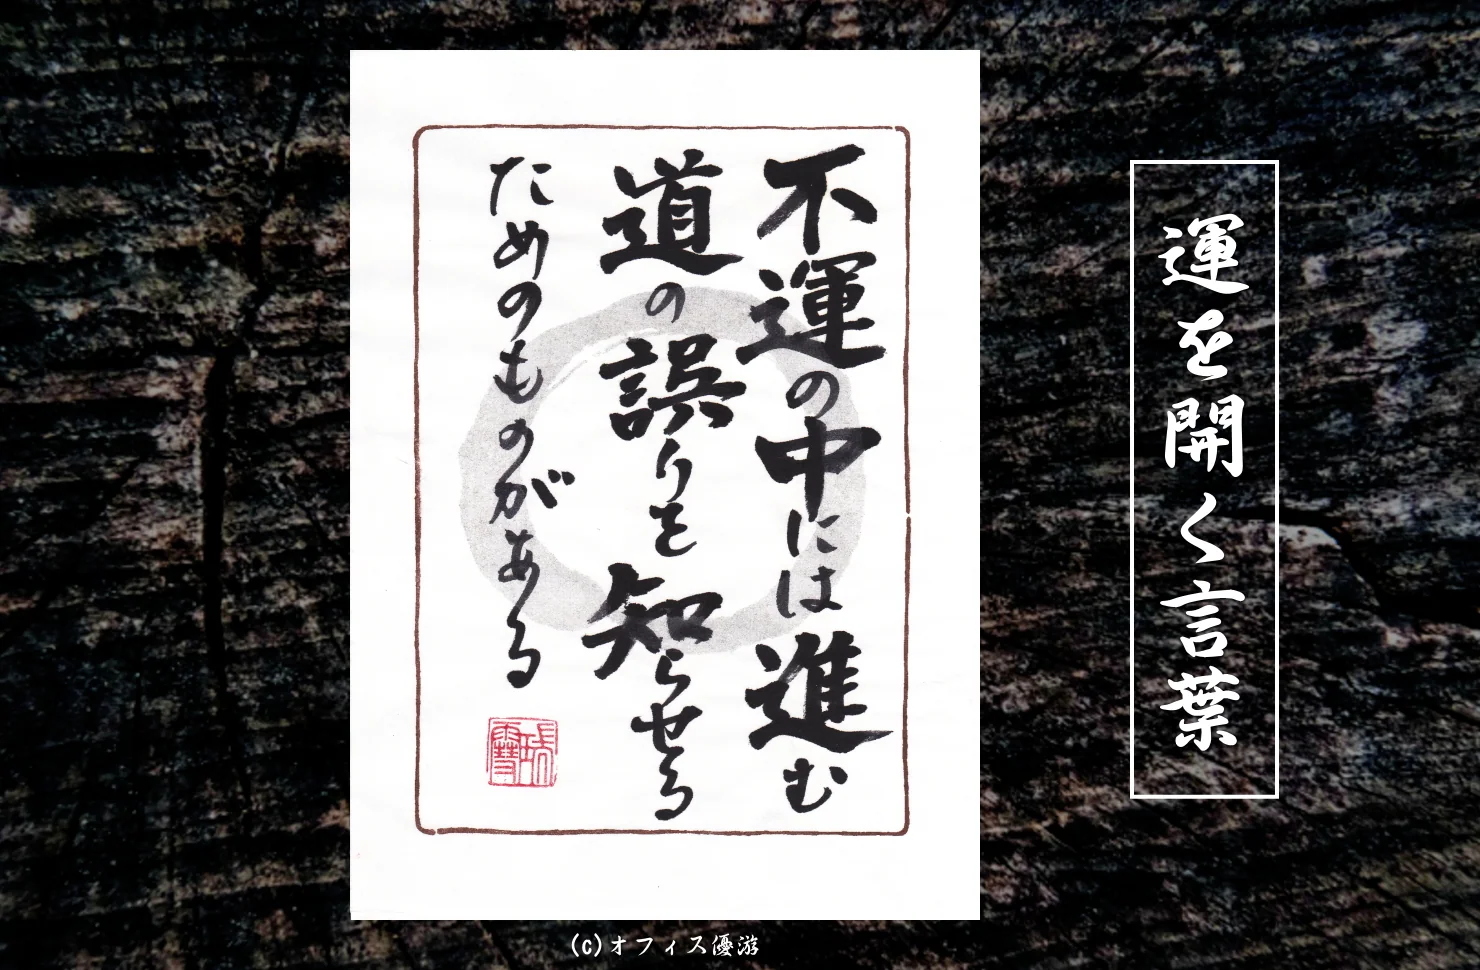 運を開く言葉
不運の中には進む
道の誤りを知らせる
ためのものがある
(c)オフィス優游